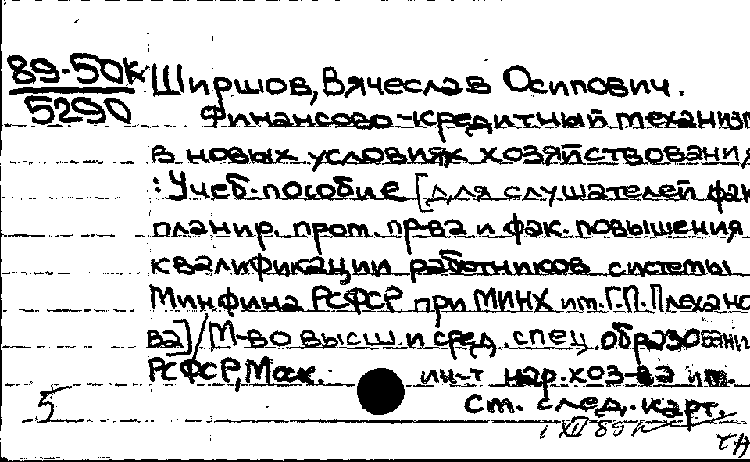 89-50к
5290
Ширшов, Вячеслав Осипович.
Финансово-кредитный механизм
в новых условиях хозяйствовани
: Учеб. пособие [для слушателей фак
планир. пром. пр-ва и фак. повышения
квалификации работников системы
Минфина РСФСР при МИНХ им. Г.П. Плехано
ва] / М-во высш. и сред. спец. образовани
РСФСР, Моск. ин-т нар. хоз-ва им.
ст. след. карт.
5
1 XII 89